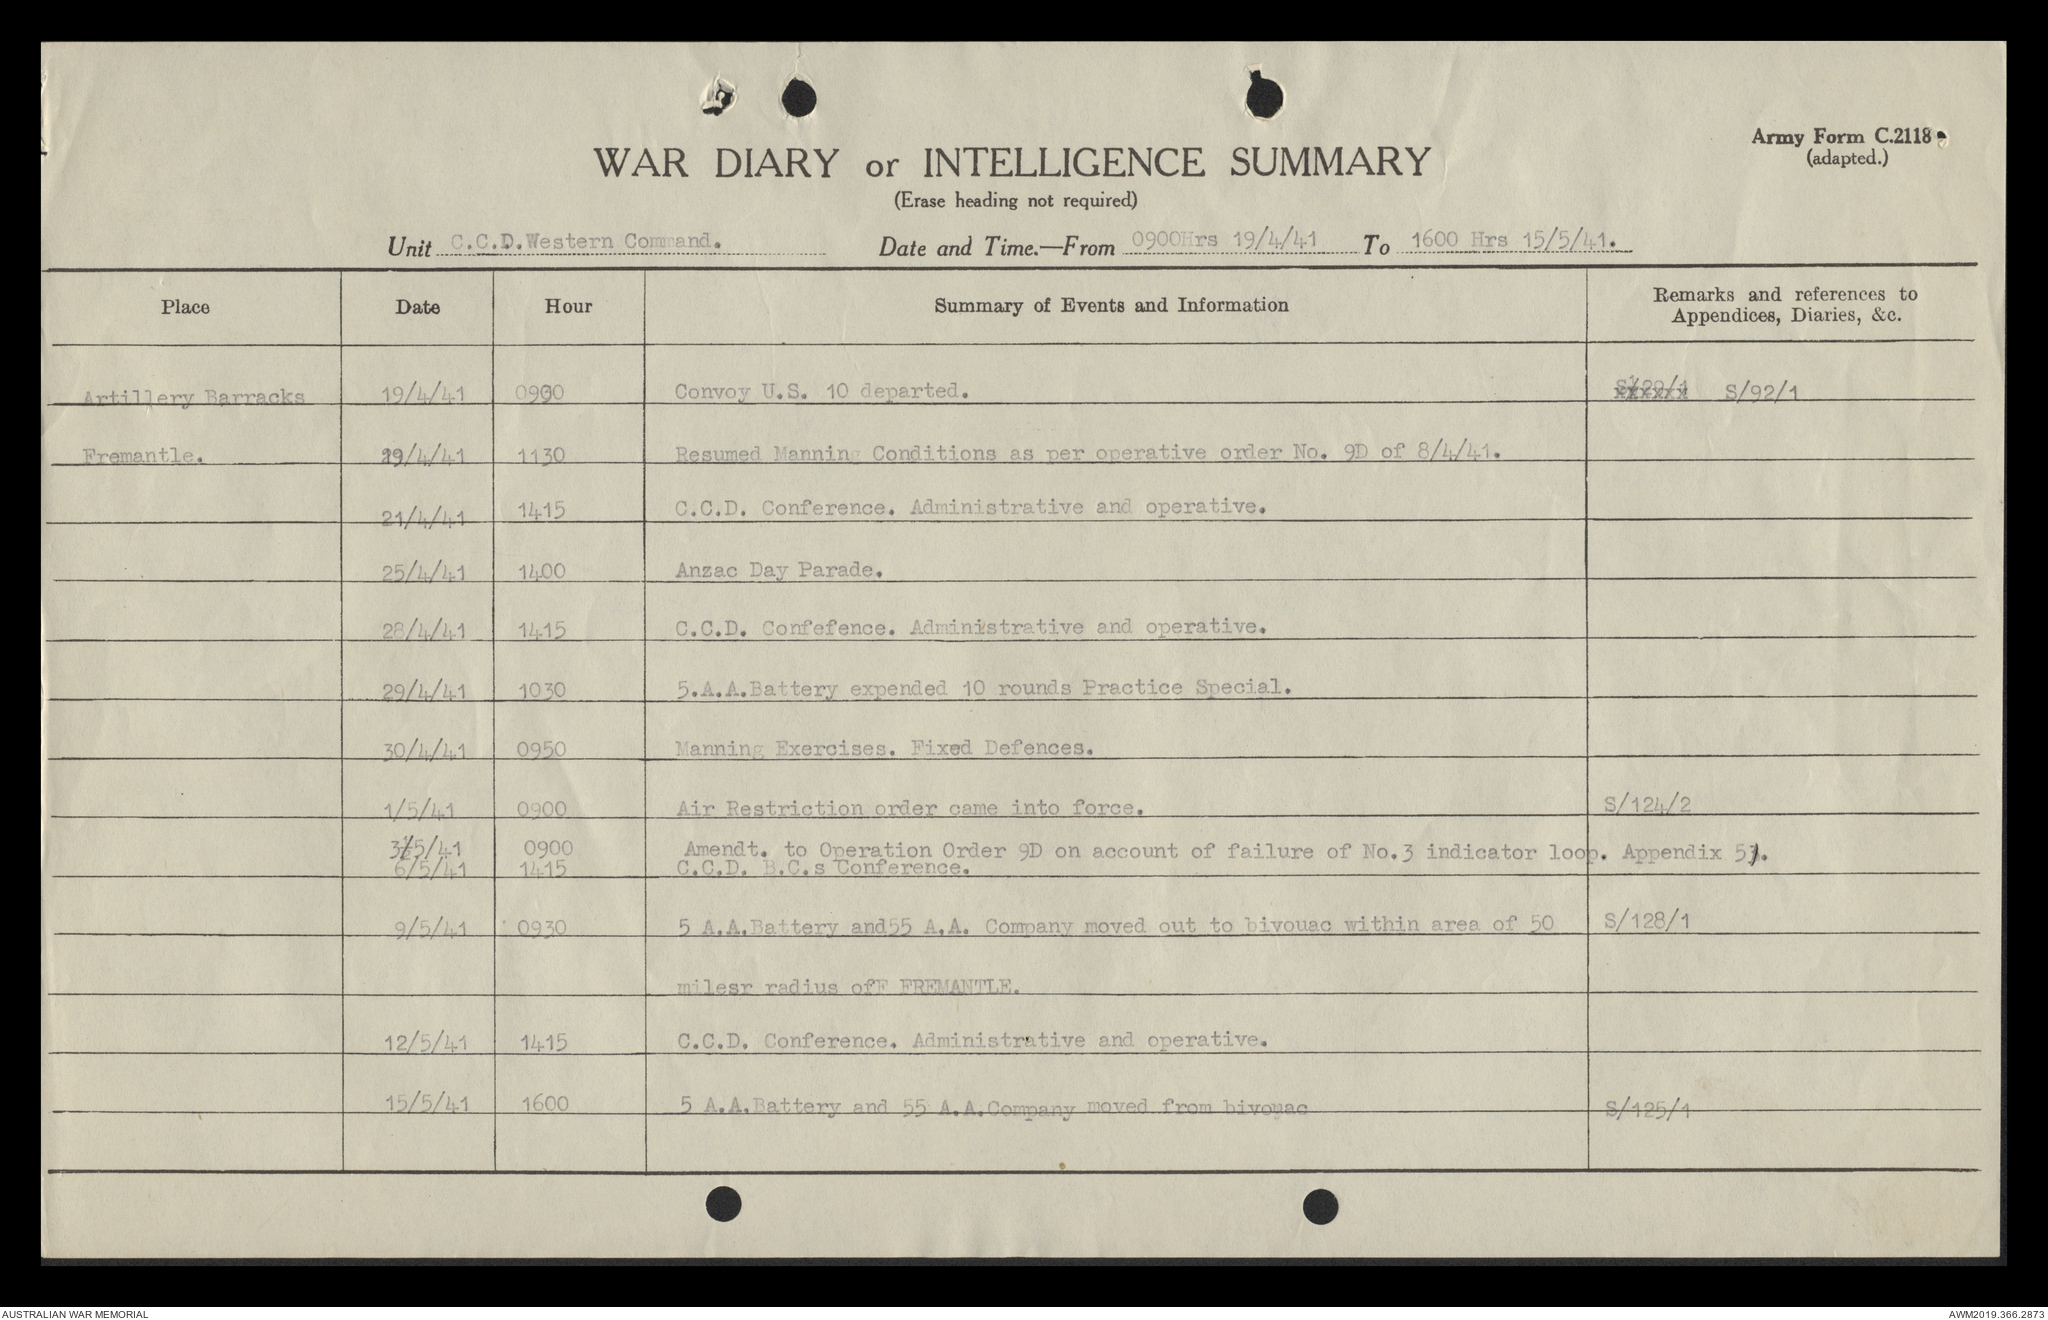 Army Form C.2118.
(adapted.)
WAR DIARY or INTELLIGENCE SUMMARY
(Erase heading not required)
Unit C.C.D.Western Command. Date and Time.—From 0900Hrs 19/4/41 To 1600 Hrs 15/5/41.
Place Date Hour Summary of Events and Information Remarks and references to
Appendices, Diaries, &c.
Artillery Barracks 19/4/41 0900 Convoy U.S. 10 departed. S/92/1
Fremantle. 19/4/41 1130 Resumed Manning Conditions as per operative order No. 9D of 8/4/41.
21/4/41 1415 C.C.D. Conference. Administrative and operative.
25/4/41 1400 Anzac Day Parade.
28/4/41 1415 C.C.D. Confefence. Administrative and operative.
29/4/41 1030 5.A.A.Battery expended 10 rounds Practice Special.
30/4/41 0950 Manning Exercises. Fixed Defences.
1/5/41 0900 Air Restriction order came into force. S/124/2
3/5/41 0900 Amendt. to Operation Order 9D on account of failure of No.3 indicator loop. Appendix 51.
6/5/41 1415 C.C.D. B.C.s Conference.
9/5/41 0930 5 A.A.Battery and55 A.A. Company moved out to bivouac within area of 50 S/128/1
milesr radius ofF FREMANTLE.
12/5/41 1415 C.C.D. Conference. Administrative and operative.
15/5/41 1600 5 A.A.Battery and 55 A.A.Company moved from bivouac S/125/1
AUSTRALIAN WAR MEMORIAL AWM2019.366.2873